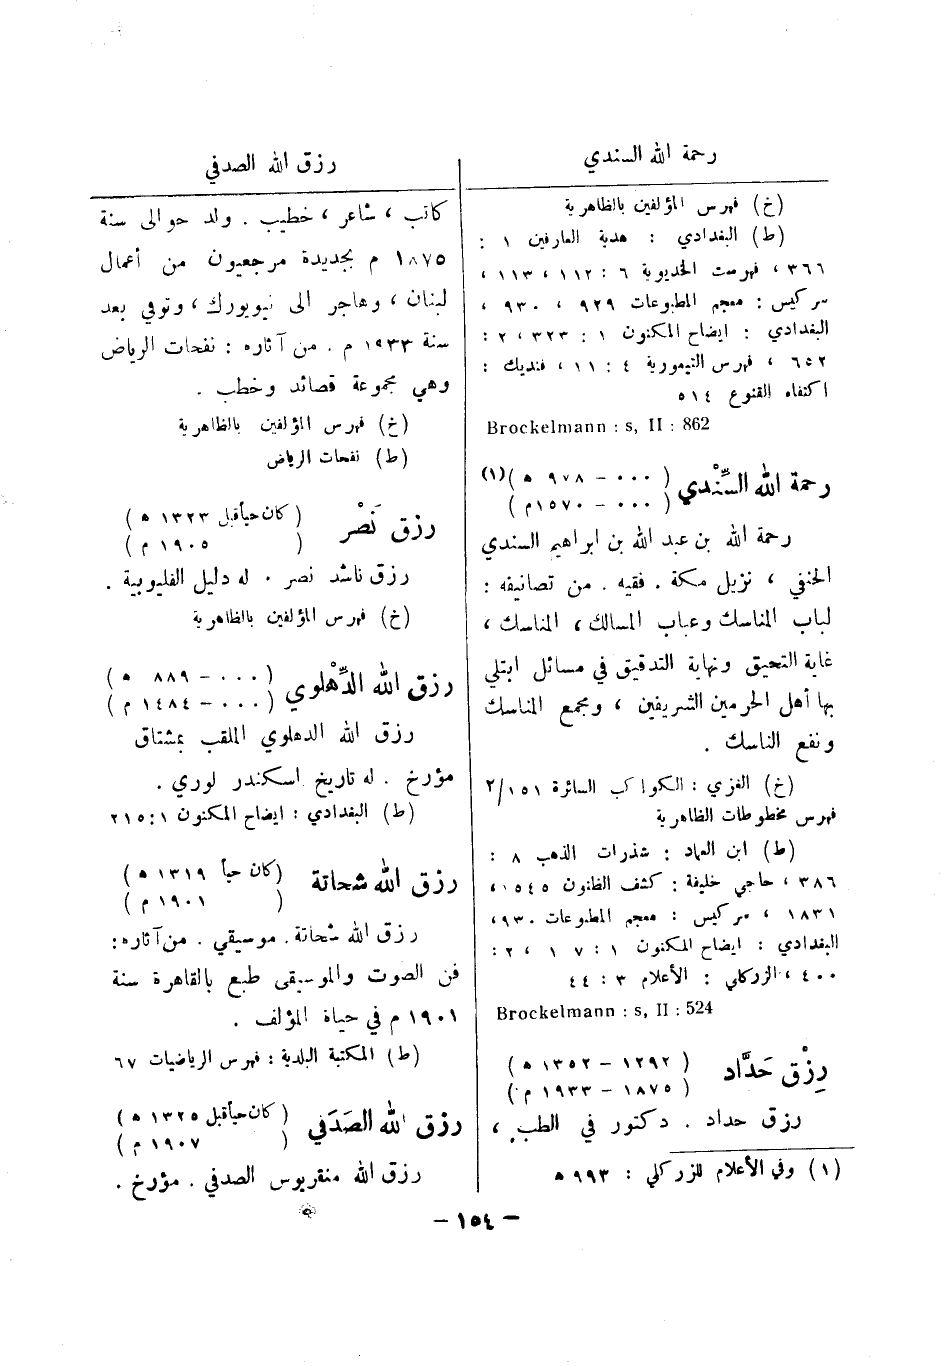 رحمة الله السندي
(خ) فهرس المؤلفين بالظاهرية
(ط) البغدادي : هدية العارفين ١ :
٣٦٦ ، فهرست الخديوية ٦ : ١١٢ ، ١١٣ ،
سركيس : معجم المطبوعات ٩٢٩ ، ٩٣٠ ،
البغدادي : ايضاح المكنون ١ : ٣٢٣ ، ٢ :
٦٥٢ ، فهرس التيمورية ٤ : ١١ ، فنديك :
اكتفاء القنوع ٥١٤
Brockelmann : s, II : 862
رحمة الله السِّنْدي ( ٠٠٠ – ٩٧٨ ه )(١)
( ٠٠٠ – ١٥٧٠ م )
رحمة الله بن عبد الله بن ابراهيم السندي
الحنفي ، نزيل مكة . فقيه . من تصانيفه :
لباب المناسك وعباب المسالك ، المناسك ،
غاية التحيق ونهاية التدقيق في مسائل ابتلي
بها أهل الحرمين الشريفين ، ومجمع المناسك
ونفع الناسك .
(خ) الغزي : الكواكب السائرة ١٥١/٢
فهرس مخطوطات الظاهرية
(ط) ابن العماد : شذرات الذهب ٨ :
٣٨٦ ، حاجي خليفة : كشف الظنون ١٥٤٥ ،
١٨٣١ ، سركيس : معجم المطبوعات ٩٣٠ ،
البغدادي : ايضاح المكنون ١ : ٧١ ، ٢ :
٤٠٠ ، الزركلي : الأعلام ٣ : ٤٤
Brockelmann : s, II : 524
رِزْق حَدَّاد ( ١٢٩٢ – ١٣٥٢ ه )
( ١٨٧٥ – ١٩٣٣ م )
رزق حداد . دكتور في الطب ،
(١) وفي الأعلام للزركلي : ٩٩٣ ه
رزق الله الصدفي
كاتب ، شاعر ، خطيب . ولد حوالى سنة
١٨٧٥ م بجديدة مرجعيون من أعمال
لبنان ، وهاجر الى نيويورك ، وتوفي بعد
سنة ١٩٣٣ م . من آثاره : نفحات الرياض
وهي مجموعة قصائد وخطب .
(خ) فهرس المؤلفين بالظاهرية
(ط) نفحات الرياض
رزق نَصْر ( كان حياً قبل ١٣٢٣ ه )
( ١٩٠٥ م )
رزق ناشد نصر . له دليل القليوبية .
(خ) فهرس المؤلفين بالظاهرية
رزق الله الدِّهْلوي ( ٠٠٠ – ٨٨٩ ه )
( ٠٠٠ – ١٤٨٤ م )
رزق الله الدهلوي الملقب بمشتاق
مؤرخ . له تاريخ اسكندر لوري .
(ط) البغدادي : ايضاح المكنون ١ : ٢١٥
رزق الله شحاتة (كان حياً ١٣١٩ ه )
( ١٩٠١ م )
رزق الله شحاتة . موسيقي . من آثاره :
فن الصوت والموسيقى طبع بالقاهرة سنة
١٩٠١ م في حياة المؤلف .
(ط) المكتبة البلدية : فهرس الرياضيات ٦٧
رزق الله الصَدَفي ( كان حياً قبل ١٣٢٥ ه )
( ١٩٠٧ م )
رزق الله منقريوس الصدفي . مؤرخ .
– ١٥٤ –